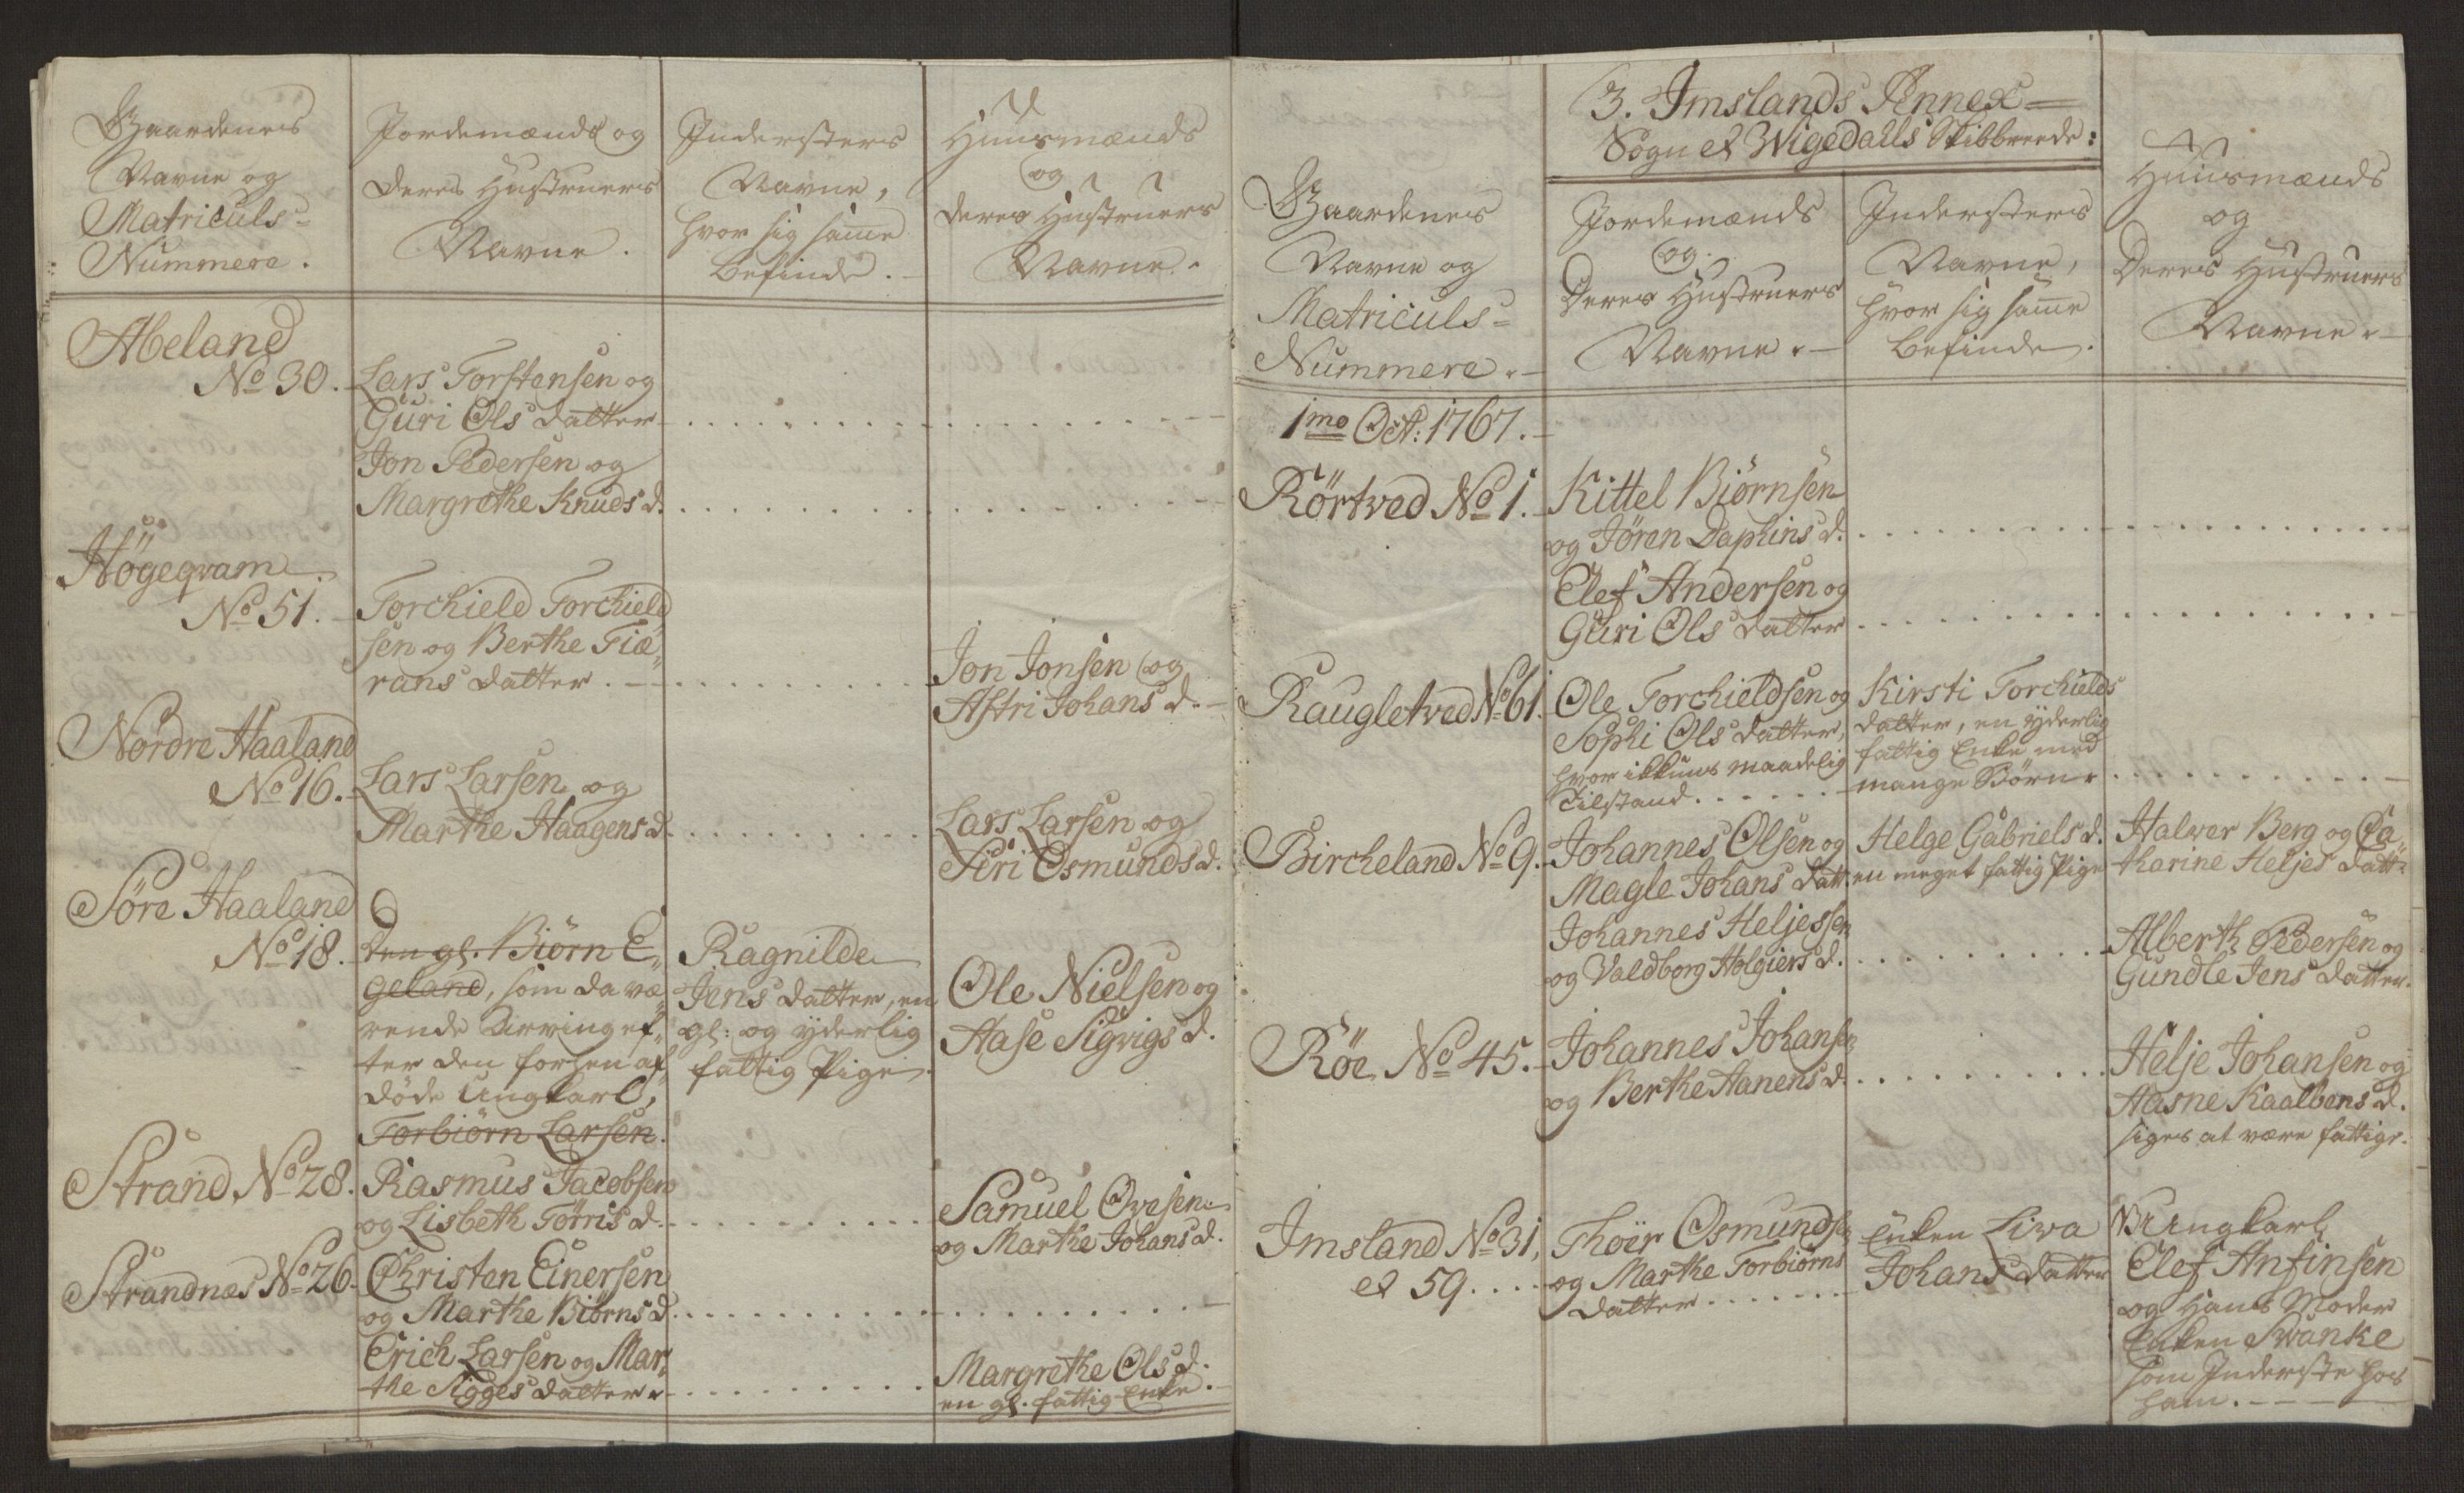 Gaardenes
Navne og
Matriculs-
Nummere.
Jordemænds og
deres Hustruers
Navne.
Indersters
Navne,
hvor sig same
befinde.
Huusmænds
og
deres Hustruers
Navne.
Abeland
No 30.
Lars Torstensen og
Guri Ols datter
Jon Pedersen og
Margrethe Knuds d.
Høgeqvam
No 51.
Torchield Torchield
sen og Berthe Fiæ„
rans datter.
Jon Jonsen og
Astri Johans d.
Nordre Haaland
No 16.
Lars Larsen og
Marthe Haagens d.
Lars Larsen og
Siri Osmunds d.
Søre Haaland
No 18.
den gl. Biørn E„
geland, som da væ„
rende Arving ef„
ter den forhen af„
døde Ungkarl,
Torbiørn Larsen.
Ragnilde
Jens datter, en
gl: og yderlig
fattig Pige.
Ole Nielsen og
Aase Sigvigs d.
Strand No 28.
Rasmus Jacobsen
og Lisbeth Tørris d.
Samuel Ovesen
og Marthe Johans d.
Strandnæs No 26.
Christen Einersen
og Marthe Biørns d.
Erich Larsen og Mar„
the Sigges datter
Margrethe Ols d.
en gl. fattig Enke.
3. Imslands Annex=
Sogn et Wigedalls Skibbrede:
Gaardenes
Navne og
Matriculs=
Nummere.
Jordemænds
og
Deres Hustruers
Navne.
Indersters
Navne,
hvor sig same
befinde.
Huusmænds
og
Deres Hustruers
Navne.
1mo Oct: 1767.
Rörtved No 1.
Kittel Biørnsen
og Jören Daphins d.
Elef Andersen og
Guri Ols datter
Raugletved No 61.
Ole Torchieldsen og
Sophi Ols datter,
hvor ikkuns maadelig
tilstand.
Kirsti Torchields
datter, en yderlig
fattig Enke med
mange Børn.
Bircheland No 9.
Johannes Olsen og
Magle Johans datt.
Helge Gabriels d.
en meget fattig Pige
Halver Berg og Ca„
tharine Heljes datt.
Johannes Heljessen
og Valdborg Holgiers d.
Alberth Pedersen og
Gundle Jens datter.
Röe No 45.
Johannes Johansen
og Berthe Aanens d.
Helje Johansen og
Aasne Kaalbens d.
siges at være fattige.
Imsland No 31,
et 59.
Thoër Osmundsen
og Marthe Torbiørns
datter
Enken Liva
Johans datter
NB Ungkarl
Elef Anfinsen
og Hans Moder
Enken Svanke
som Inderste hos
ham.